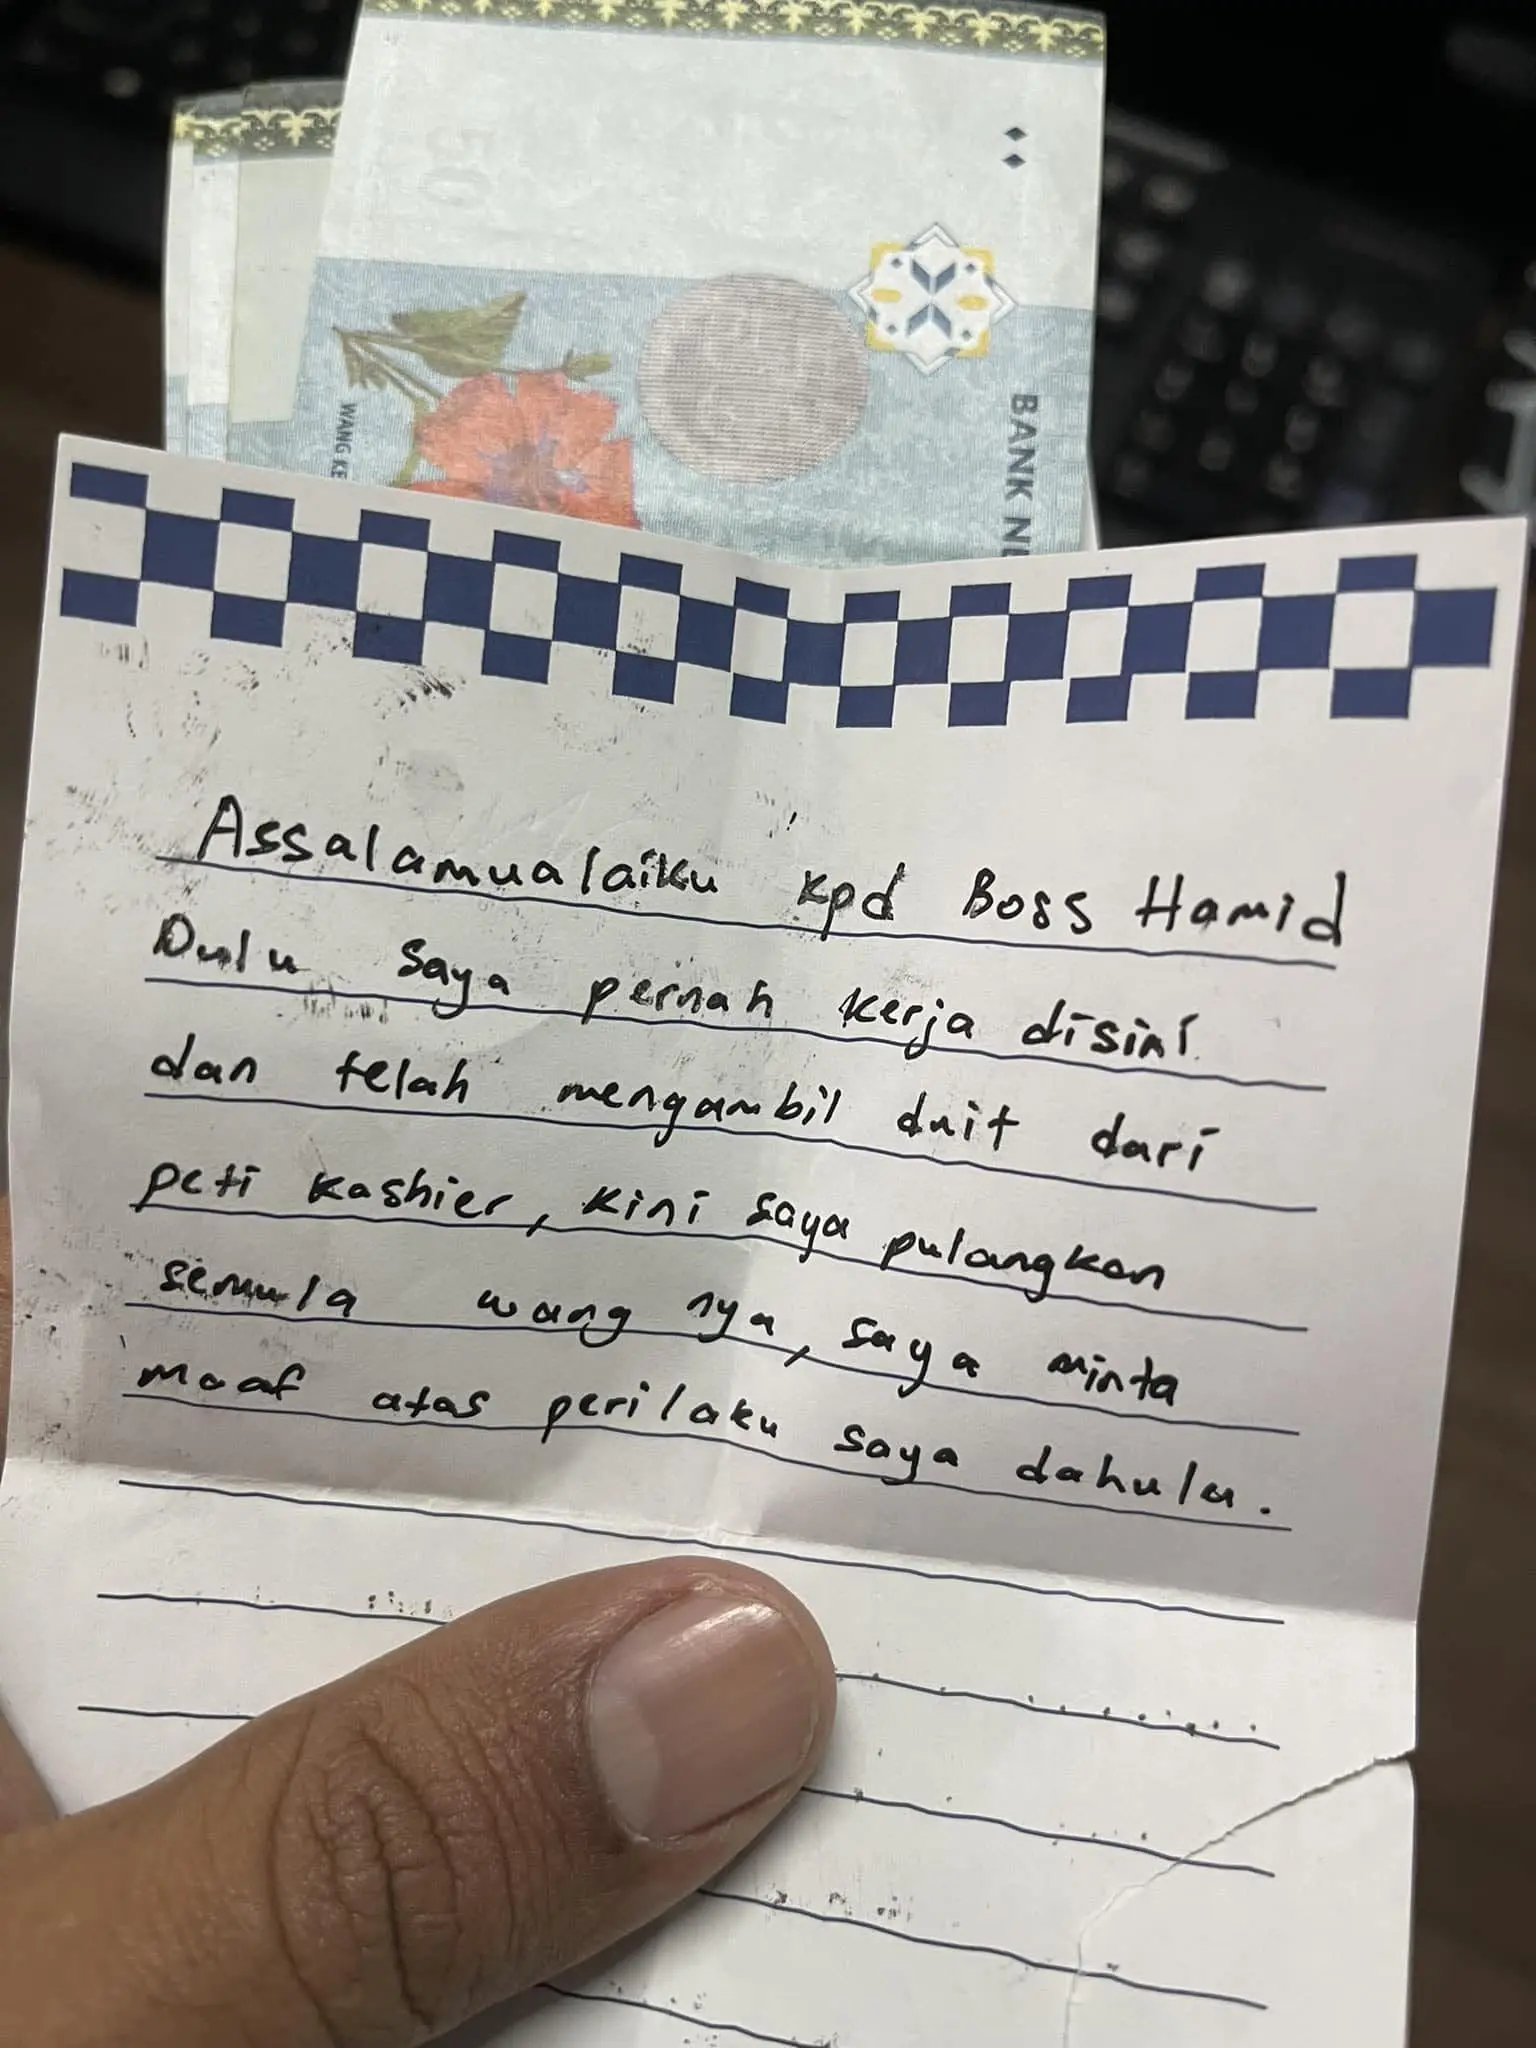 50
BANK N
WANG KE
Assalamualaiku kpd Boss Hamid
Dulu saya pernah kerja disini
dan telah mengambil duit dari
peti kashier, kini saya pulangkan
semula wang nya, saya minta
maaf atas perilaku saya dahulu.